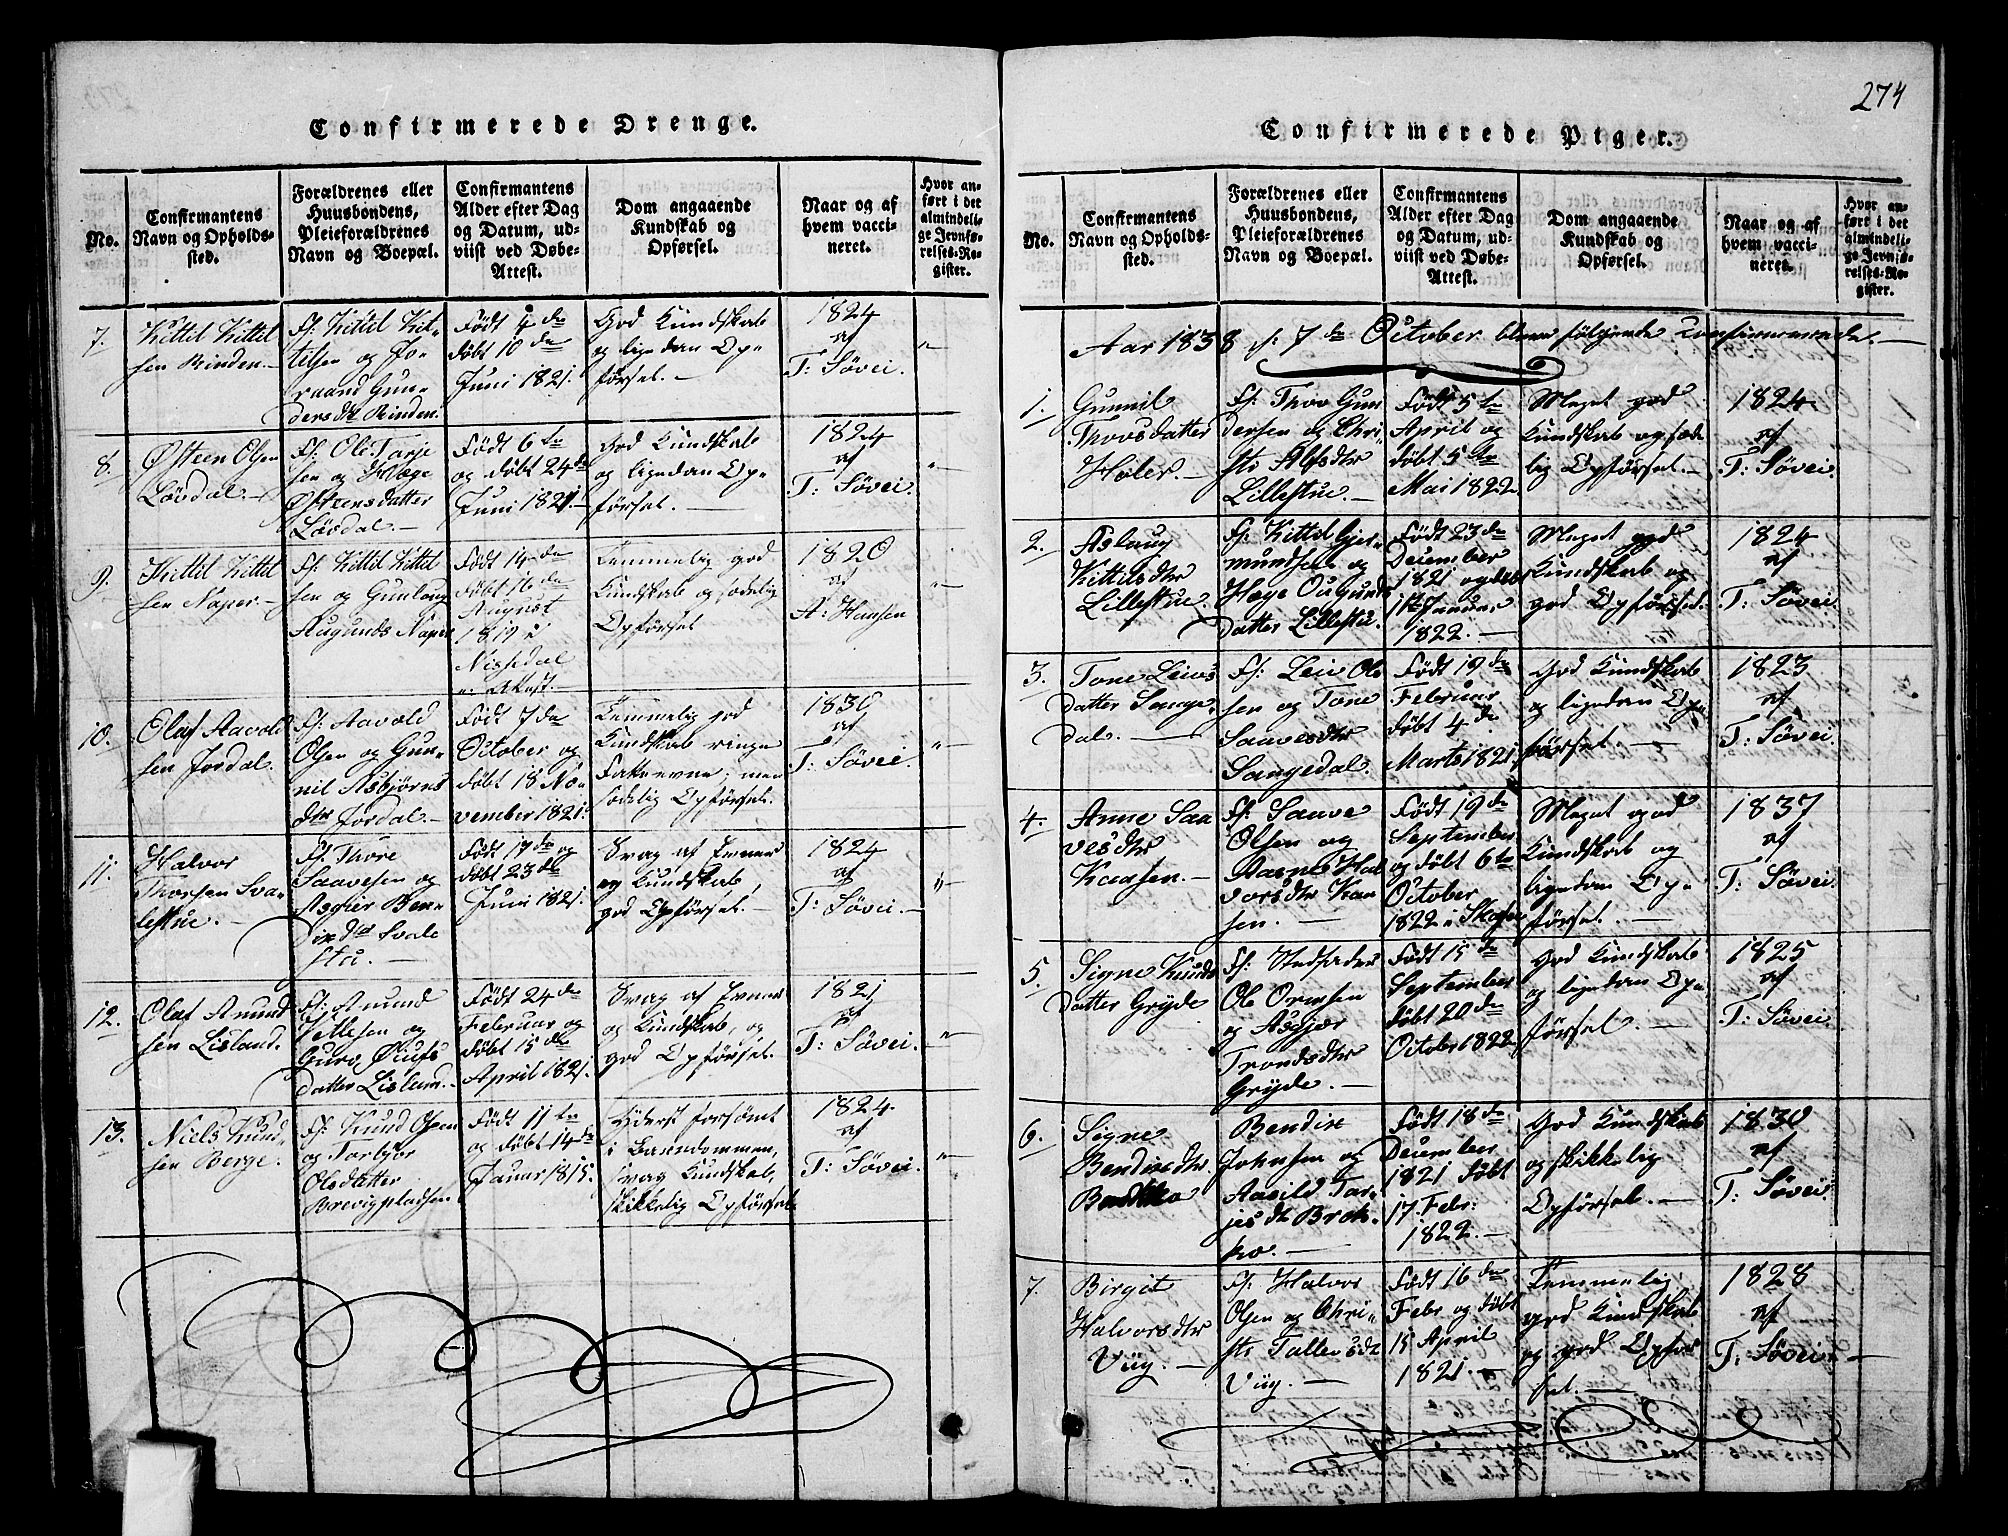 274
Confirmerede Drenge.
No.
Confirmantens
Navn og Opholds-
sted.
Forældrenes eller
Huusbondens,
Pleieforældrenes
Navn og Boepæl.
Confirmantens
Alder efter Dag
og Datum, ud-
viist ved Døbe-
Attest.
Dom angaaende
Kundskab og
Opførsel.
Naar og af
hvem vacci-
neret.
Hvor an-
ført i det
almindeli-
ge Jevnfø-
relses-Re-
gister.
7.
Kittil Kittil
sen Rinden.
F: Kittil Kit-
tilsen og Jo-
raand Gun-
dersdtr Rinden.
Født 4de
døbt 10de
Juni 1821.
God Kundskab
og ligedan Op-
førsel.
1824
af
T: Søvei.
"
8.
Østeen Olsen
Løvdal.
F: Ole Tarje
sen og Hæge
Østeensdatter
Løvdal.
Født 6te
og døbt 24de
Juni 1821.
God Kundskab
og ligedan Op-
førsel.
1824
af
T: Søvei.
"
9.
Kittil Kittil
sen Naper.
F: Kittil Kittil
sen og Gunloug
Augunds Naper
Født 14de
døbt 16de
August
1819 i
Nissedal
Attest.
Temmelig god
Kundskab og sædelig
Opførsel
1820
af
A: Hansen
"
10.
Olaf Aavold
sen Jordal.
F: Aavold
Olsen og Gun-
nil Asbjørns
dtr Jordal.
Født 7de
October og
døbt 18 No-
vember 1821.
Temmelig god
Kundskab ringe
Fatteevne; men
sædelig Opførsel.
1830
af
T: Søvei.
"
11.
Halvor
Thorsen Sva-
lestue.
F: Thore
Saavesen og
Asgier Ben-
dixdtr Svale
stu.
Født 17de og
døbt 23de
Juni 1821.
Svag af Evner
og Kundskab,
god Opførsel.
1824
af
T: Søvei.
"
12.
Olaf Amund
sen Lisland.
F: Amund
og
Guro
datter Lisland.
Født 24de
Februar og
døbt 15de
April 1821.
Svag af Evner
og Kundskab, og
god Opførsel.
1821
af
T: Søvei.
"
13.
Niels Knud-
sen Berge.
F: Knud Olsen
og Torbjør
Olsdatter
Brevigpladsen
Født 11te
og døbt 14de
Januar 1815.
Yderst forsømt
i Barndommen,
svag Kundskab,
skikkelig Opførsel.
1824.
af
T: Søvei.
"
Confirmerede Piger.
No.
Confirmantens
Navn og Opholds-
sted.
Forældrenes eller
Huusbondens,
Pleieforældrenes
Navn og Boepæl.
Confirmantens
Alder efter Dag
og Datum, ud-
viist ved Døbe-
Attest.
Dom angaaende
Kundskab og
Opførsel.
Naar og af
hvem vacci-
neret.
Hvor an-
ført i det
almindeli-
ge Jevnfø-
relses-Re-
gister.
Aar 1838 d: 7de October bleve følgende Confirmerede.
1.
Gunnil
Thovsdatter
Holer.
F: Thov Gun
dersen og Chri-
sti Alfsdtr
Lillestue.
Født 5te
April og
døbt 5te
Mai 1822
Meget god
Kundskab og sæde
lig Opførsel.
1824.
af
T: Søvei.
2.
Aslaug
Kittilsdtr
Lillestue.
F: Kittil Gjer-
mundsen og
Hæge Ougunds
datter Lillestu.
Født 23de
December
1821 og døbt
1ste Januar
1822.
Meget god
Kundskab og
god Opførsel.
1824
af
T: Søvei.
3.
Tone Leivs
datter Sange-
dal.
F: Leiv Ol
sen og Tone
Saavesdtr
Sangedal.
Født 19de
Februar
døbt 4de
Marts 1821.
God Kundskab
og ligedan Op-
førsel.
1823
af
T: Søvei.
4.
Anne Saa
vesdtr
Kaasen.
F: Saave
Olsen og
Aasne Hal
vorsdtr Kaa
sen.
Født 19de
September
og døbt 6te
October
1822 i
Meget god
Kundskab og
ligedan Op-
førsel.
1837
af
T: Søvei.
5.
Signe Knuds
datter Gryde
F: Stedfader
Ole Ormsen
og Asgjær
Trondsdtr
Gryde.
Født 15de
September
døbt 20de
October 1822
God Kundskab
og ligedan Op-
førsel.
1825
af
T: Søvei.
6.
Signe
Bendixsdtr.
Bendix
Johnsen og
Aasild Tar-
jesdtr Brok-
ko.
Født 18de
December
1821 døbt
17. Febr:
1822.
God Kundskab
og skikkelig
Opførsel.
1830
af
T: Søvei.
7.
Birgit
Halvorsdtr
Viig.
F: Halvor
Olsen og Chri-
sti Tallevsdtr
Viig.
Født 16de
Febr og døbt
15 April
1821.
Temmelig
god Kundskab
og god Opfør
sel.
1828
af
T: Søvei.